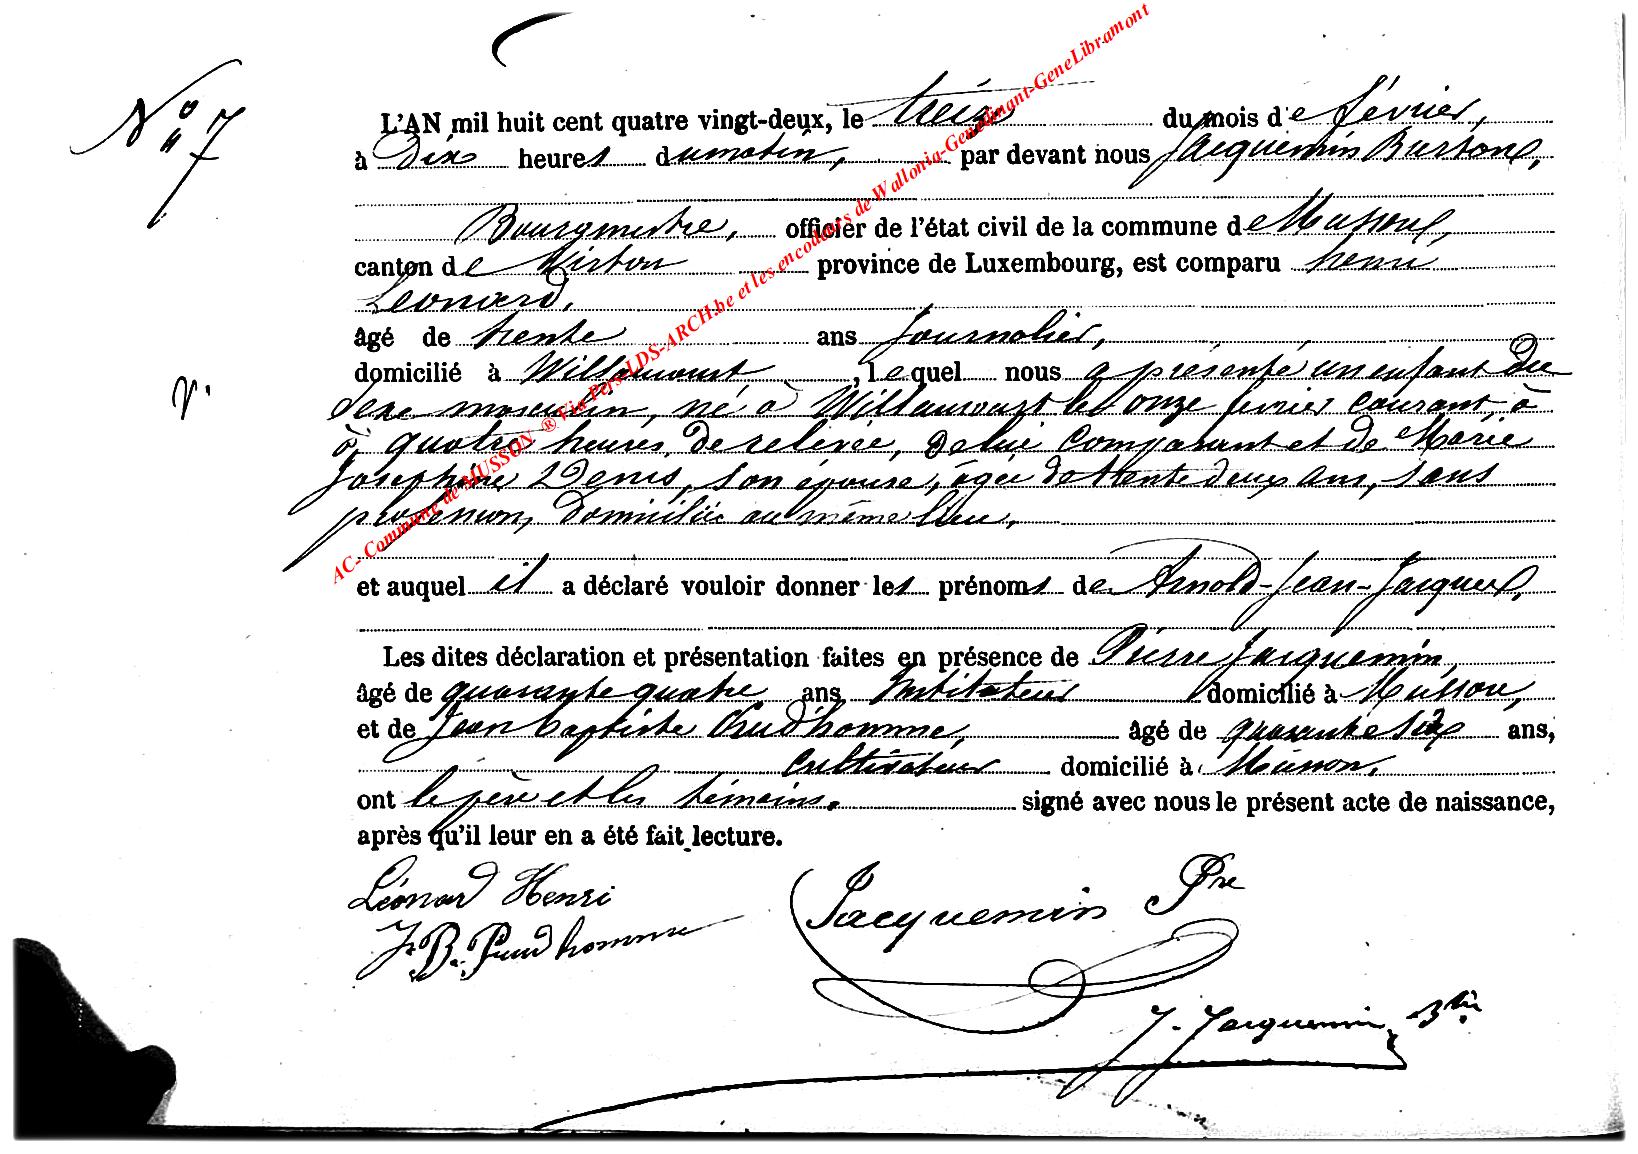 N° 7
L'AN mil huit cent quatre vingt-deux, le treize du mois de février,
à dix heures du matin, par devant nous Jacquemin
Bourgmestre, officier de l'état civil de la commune de Musson,
canton de Virton province de Luxembourg, est comparu henri
Léonard,
âgé de trente ans Journalier,
domicilié à Willancourt, lequel nous a présenté un enfant du
sexe masculin, né à Willancourt le onze fevrier courant, à
à quatre heures de relevée, de lui comparant et de Marie
Josephine Denis, son épouse, âgée de trente deux ans, sans
profession, domiciliée au même lieu,
et auquel il a déclaré vouloir donner les prénoms de Arnold-Jean-Jacques,
Les dites déclaration et présentation faites en présence de Pierre Jacquemin,
âgé de quarante quatre ans Instituteur domicilié à Musson,
et de Jean Baptiste Prud'homme, âgé de quarante six ans,
Cultivateur domicilié à Musson,
ont le père et les témoins. signé avec nous le présent acte de naissance,
après qu'il leur en a été fait lecture.
Léonard Henri
Jacquemin Pre
J. B. Prud homme
J. Jacquemin
AC- Commune de MUSSON ® Via Pers-LDS-ARCH.be et les encodeurs de Wallonia-Genedinant-GeneLibramont